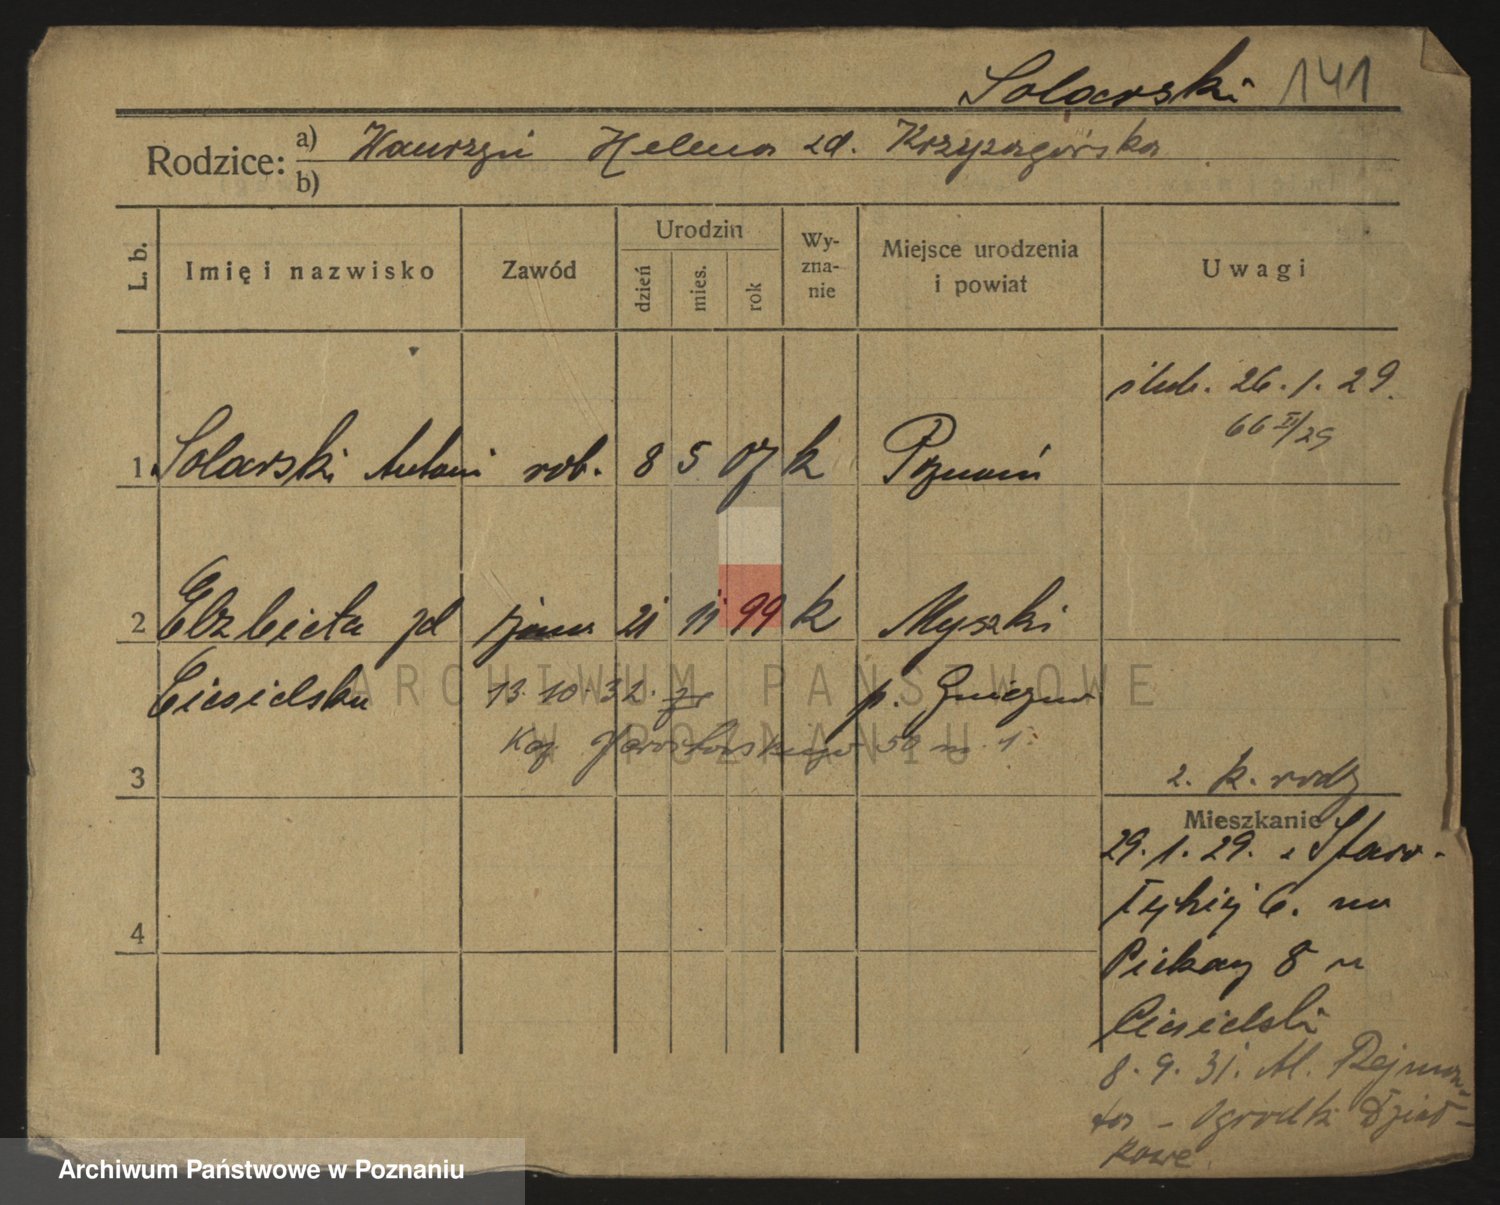 Solarski 141
Rodzice: a) Wawrzyn Helena zd. Krzyżagórska
b)
L. b. Imię i nazwisko Zawód Urodzin dzień mies. rok Wy-zna-nie Miejsce urodzenia i powiat Uwagi
ślub. 26. 1. 29.
66 II/29
1 Solarski Antoni rob. 8 5 07 k Poznań
2 Elzbieta zd 21 11 99 k Myszki
Ciesielska 13. 10. 32. p. Gniezno
Jarosławskiego 50 m. 1.
3 2. k. rodz
Mieszkanie
29. 1. 29. z Staro-
łęckiej 6. na
4
Piekary 8 u
Ciesielski
8. 9. 31. Al. Rejmon-
ta - Ogrodki Dział-
kowe.
ARCHIWUM PAŃSTWOWE
W POZNANIU
Archiwum Państwowe w Poznaniu